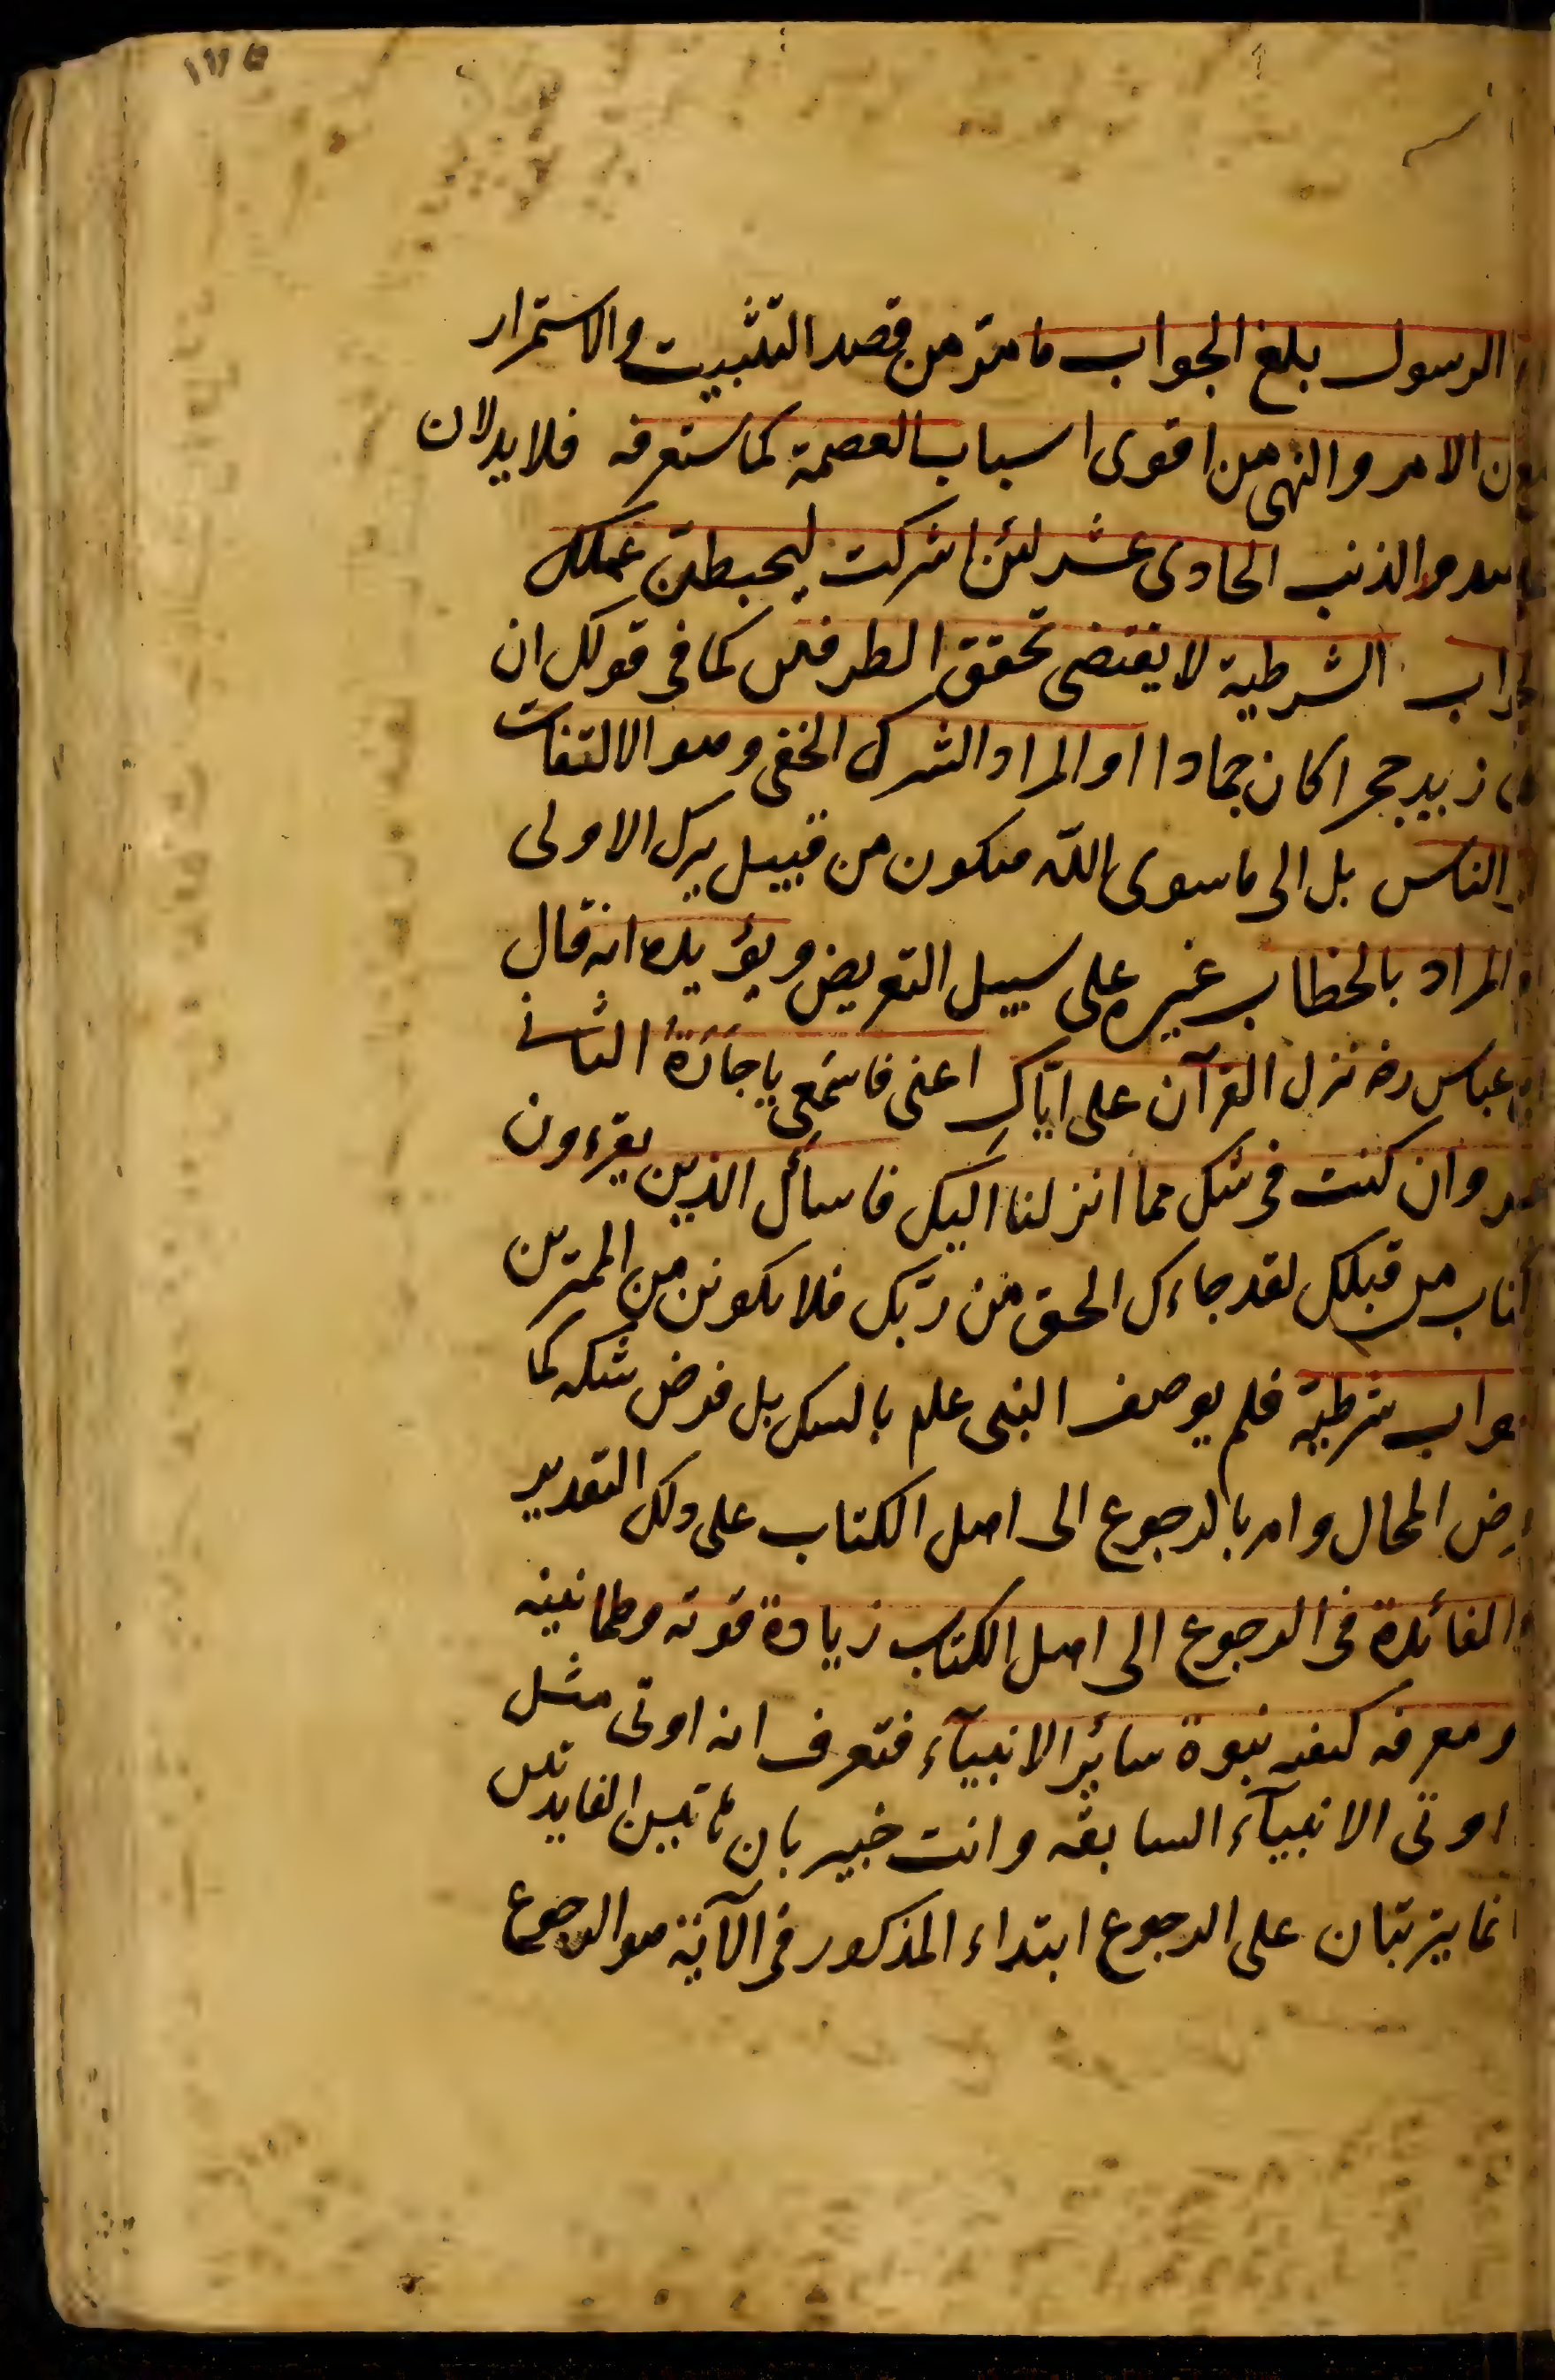 الرسول بلغ الجواب ما مرّ من قصد التثبيت والاستمرار
الامر والنهى من اقوى اسباب العصمة كما ستعرفه فلا يدلان
الذنب الحادى عشر لئن اشركت ليحبطن عملك
الشرطية لا يقتضى تحقق الطرفين كما فى قولك ان
زيد حجرا كان جمادا او المراد الشرك الخفى وهو الالتفات
الناس بل الى ما سوى الله فيكون من قبيل ترك الاولى
المراد بالخطاب غيره على سبيل التعريض ويؤيده انه قال
عباس رضه نزل القرآن على ايّاكِ اعنى فاسمَعى يا جَارَةُ الثانى
وان كنت فى شك مما انزلنا اليك فاسأل الذين يقرءون
من قبلك لقد جاءك الحق من ربّك فلا تكونن من الممترين
شرطية فلم يوصف النبى علم بالشك بل فرض شكه كما
المحال وامر بالرجوع الى اهل الكتاب على ذلك التقدير
الفائدة فى الرجوع الى اهل الكتاب زيادة قوته وطمانينه
ومعرفه كيفيه نبوة سائر الانبيآء فتعرف انه اوتى مثل
اوتى الانبيآء السابقه وانت خبير بان هاتين الفايدتين
انما يترتبان على الرجوع ابتداء المذكور فى الآية هو الرجوع